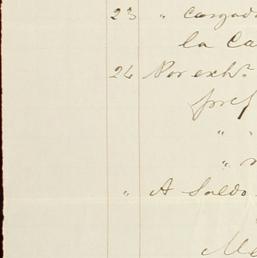 23 " cargado
la Ca
24 Por exhr.
pref
" "
"
" A Saldo
Me